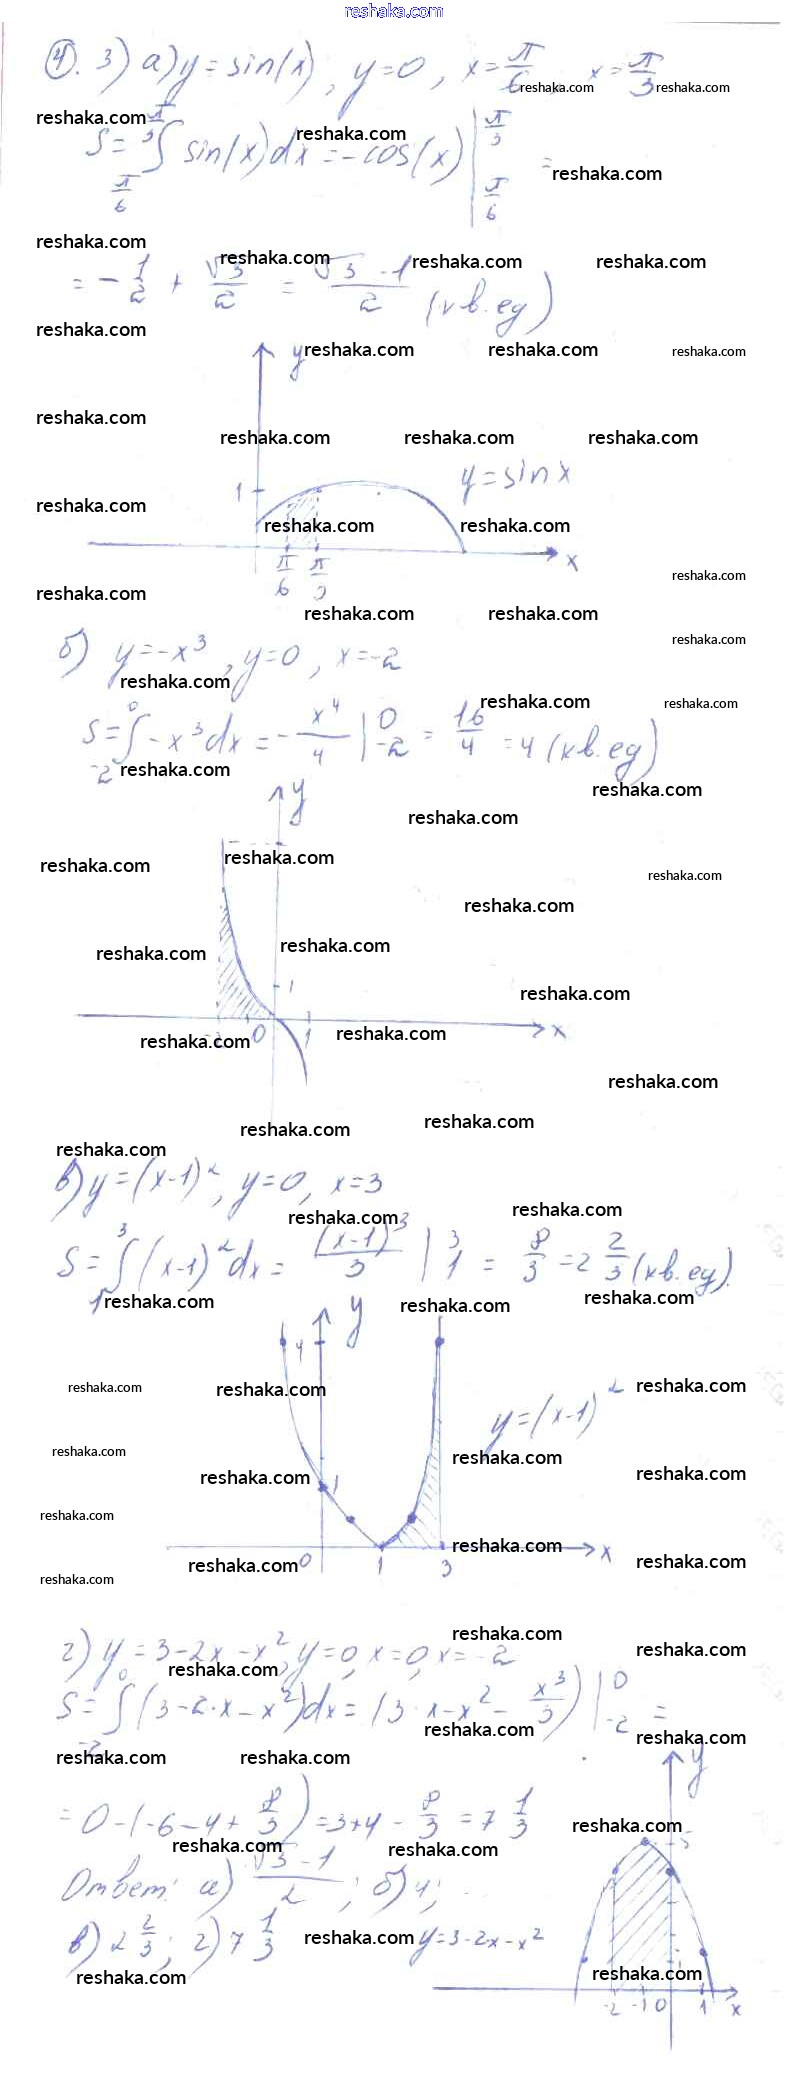 reshaka.com
4. 3) а) y = sin(x), y = 0, x = π/6, x = π/3
S = ∫ π/6 π/3 sin(x)dx = -cos(x) | π/3 π/6 =
= -1/2 + √3/2 = (√3 - 1)/2 (кв.ед)
y
1
y = sin x
π/6 π/3 x
б) y = -x³, y = 0, x = -2
S = ∫ -2 0 -x³dx = - x⁴/4 | 0 -2 = 16/4 = 4 (кв.ед)
y
1
0 1 x
в) y = (x-1)², y = 0, x = 3
S = ∫ 1 3 (x-1)²dx = (x-1)³/3 | 3 1 = 8/3 = 2 2/3 (кв.ед).
y
4
y = (x-1)²
1
0 1 3 x
г) y = 3 - 2x - x², y = 0, x = 0, x = -2
S = ∫ -2 0 (3 - 2·x - x²)dx = (3·x - x² - x³/3) | 0 -2 =
= 0 - (-6 - 4 + 8/3) = 3 + 4 - 8/3 = 7 1/3
Ответ: а) (√3 - 1)/2; б) 4;
в) 2 2/3; г) 7 1/3
y = 3 - 2x - x²
y
-2 -1 0 1 x